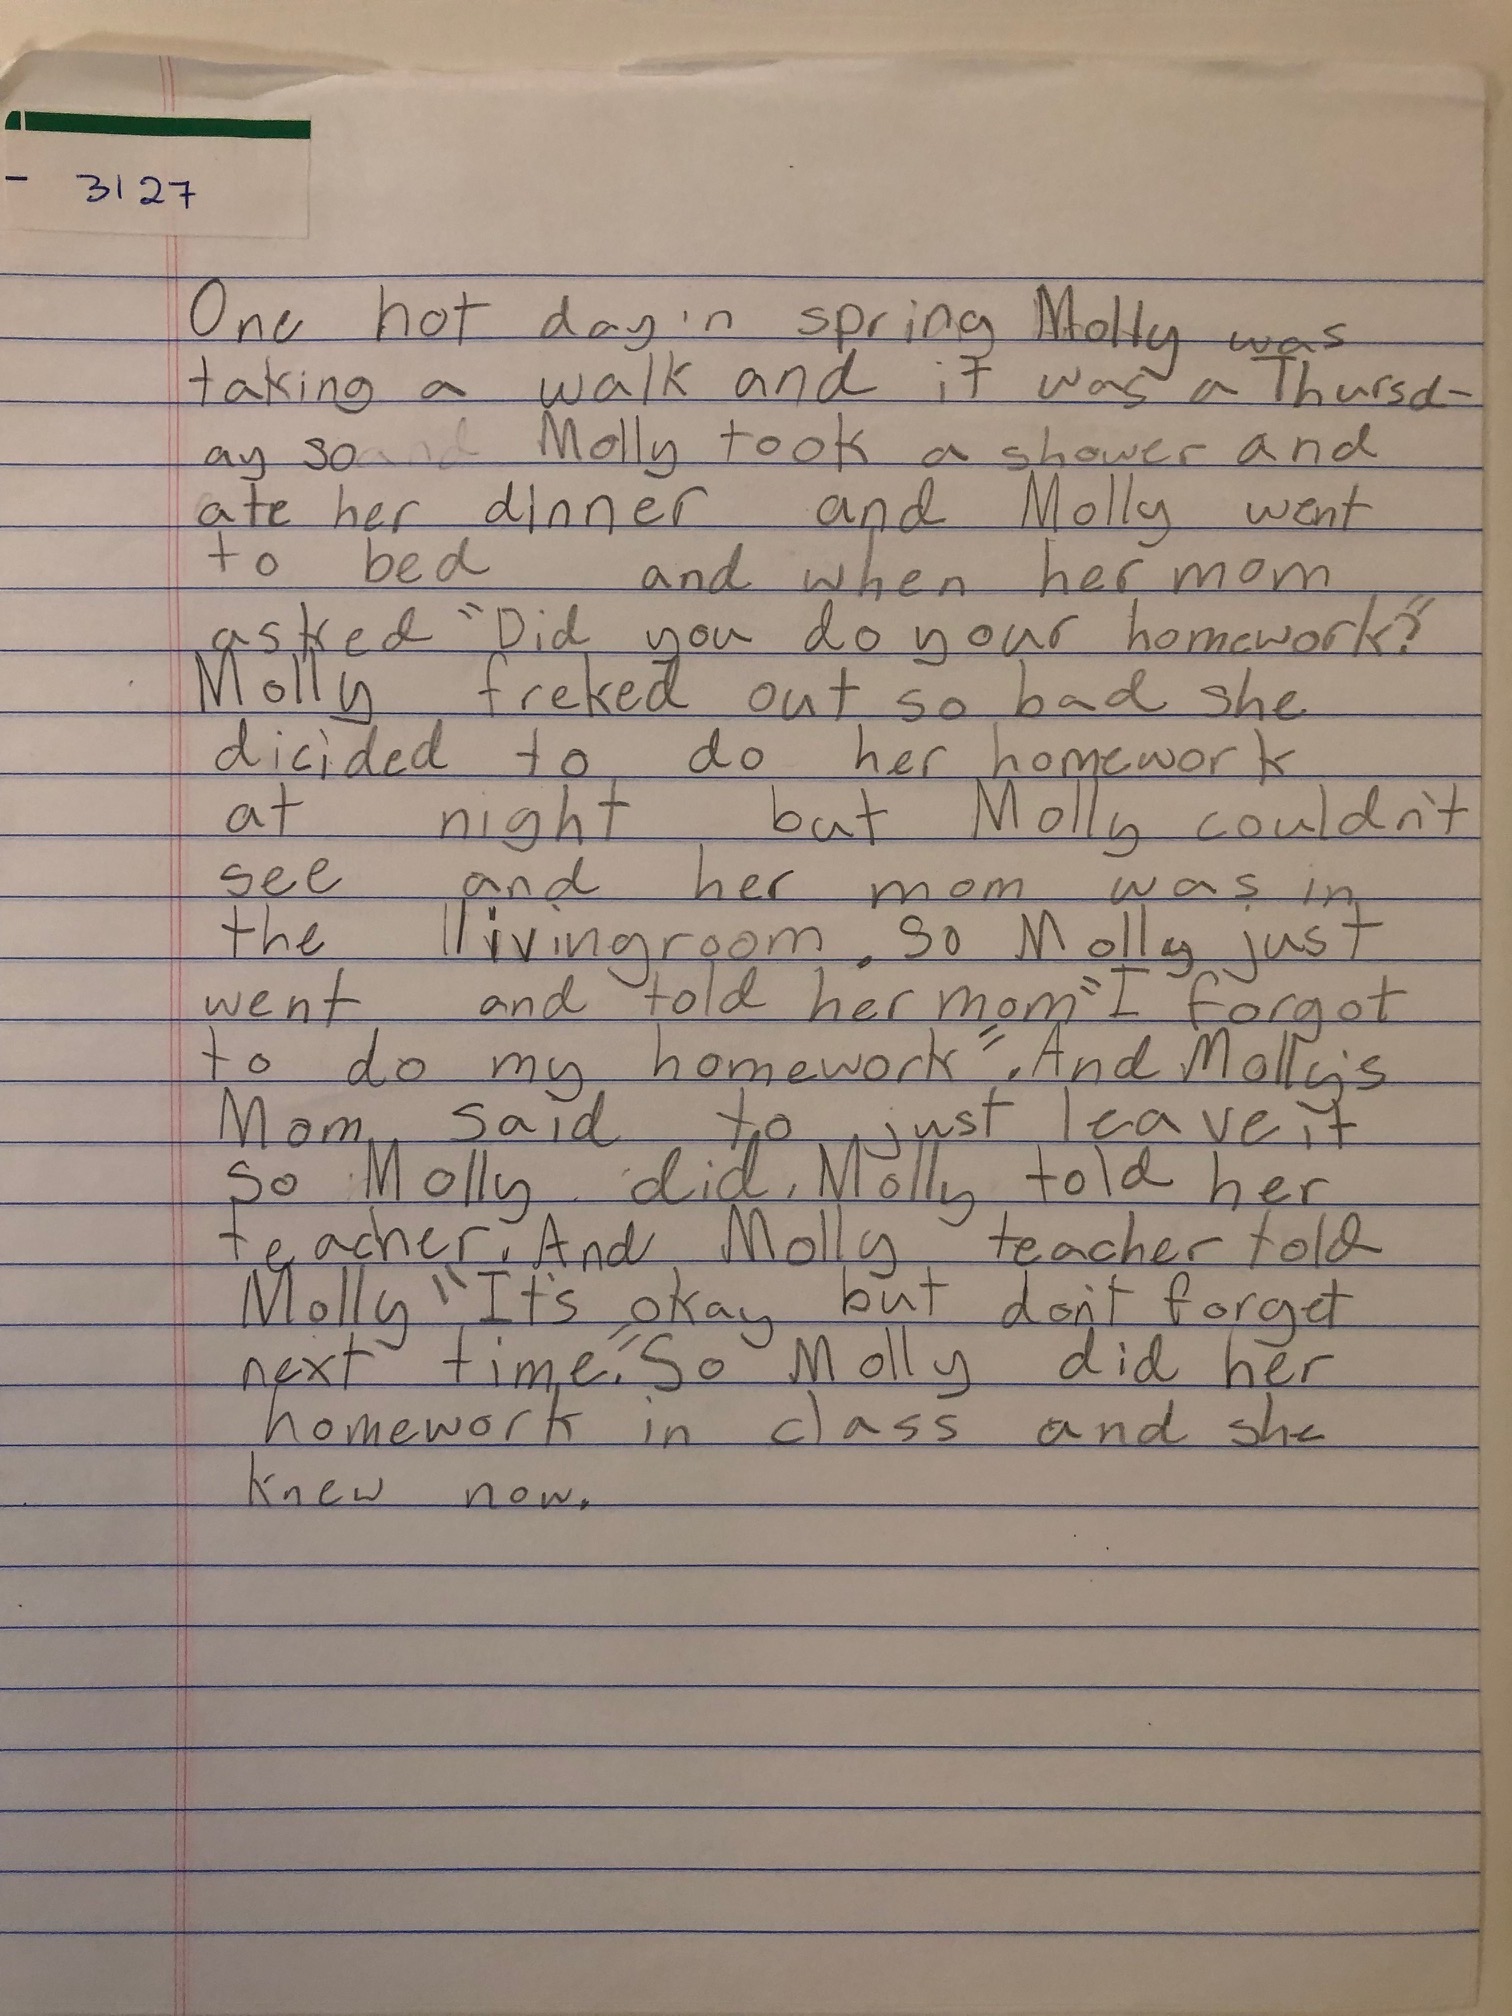 - 3127
One hot day in spring Molly was
taking a walk and it was a Thursd-
ay so Molly took a shower and
ate her dinner and Molly went
to bed and when her mom
asked "Did you do your homework?"
Molly freked out so bad she
dicided to do her homework
at night but Molly couldn't
see and her mom was in
the livingroom. So Molly just
went and told her mom "I forgot
to do my homework". And Molly's
Mom said to just leave it
so Molly did. Molly told her
teacher. And Molly teacher told
Molly "It's okay but don't forget
next time." So Molly did her
homework in class and she
knew now.